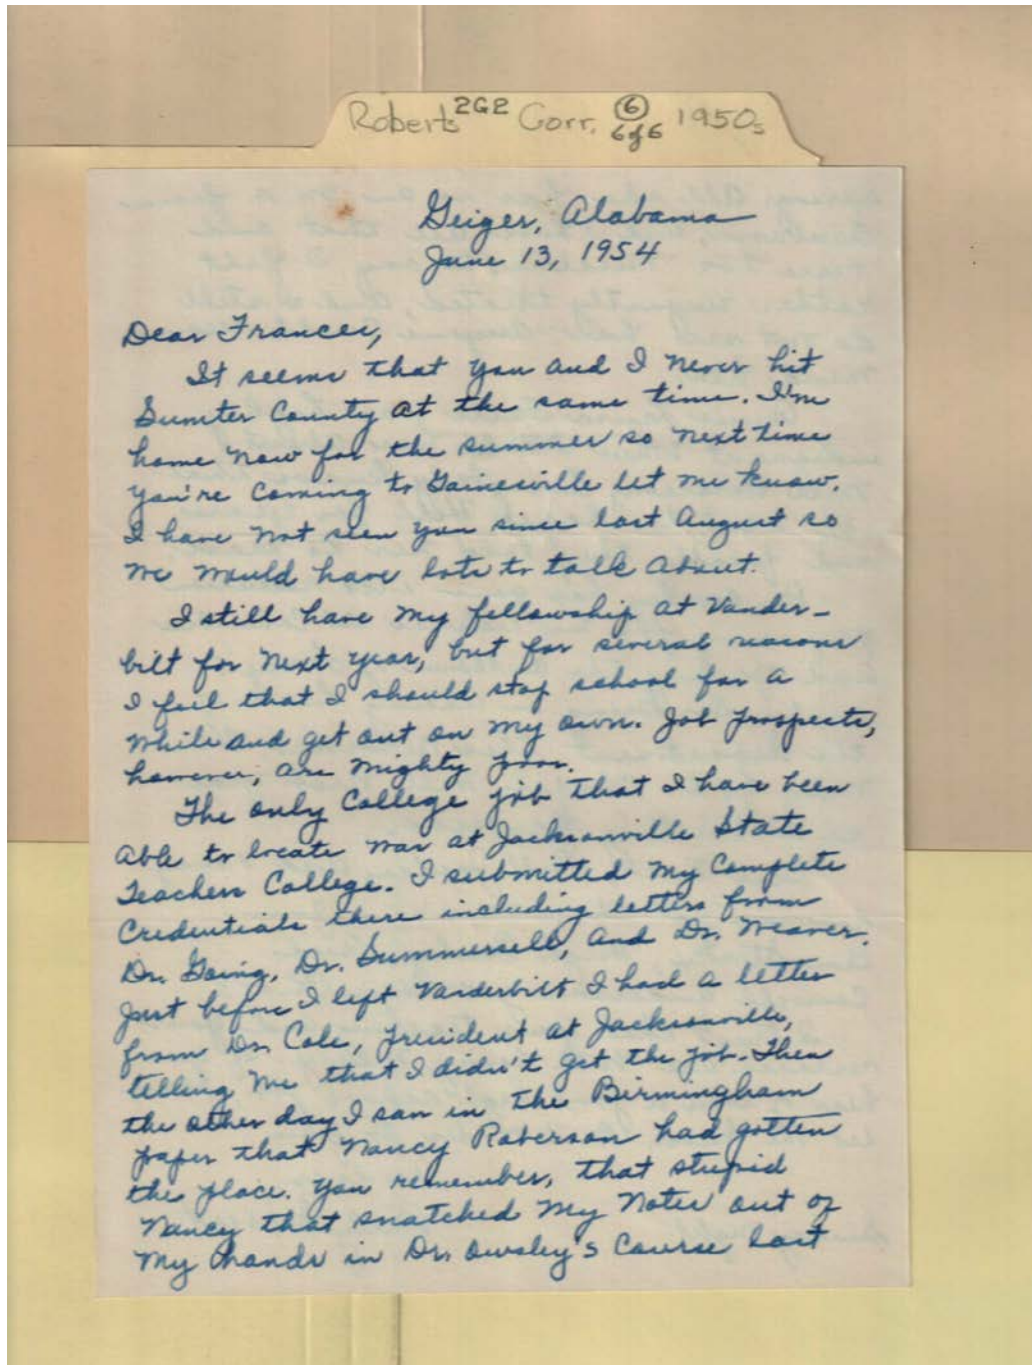 Roberts 2G2 Corr. 6 6 of 6 1950s
Geiger, Alabama
June 13, 1954
Dear Frances,
It seems that you and I never hit
Sumter County at the same time. I'm
home now for the summer so next time
you're coming to Gainesville let me know.
I have not seen you since last August so
we would have lots to talk about.
I still have my fellowship at Vander-
bilt for next year, but for several reasons
I feel that I should stop school for a
while and get out on my own. Job prospects,
however, are mighty poor.
The only College job that I have been
able to locate was at Jacksonville State
Teachers College. I submitted my complete
credentials there including letters from
Dr. Going, Dr. Summersell, and Dr. Weaver.
Just before I left Vanderbilt I had a letter
from Dr. Cole, president at Jacksonville,
telling me that I didn't get the job. Then
the other day I saw in the Birmingham
paper that Nancy Roberson had gotten
the place. You remember, that stupid
Nancy that snatched my notes out of
my hands in Dr. Owsley's course last